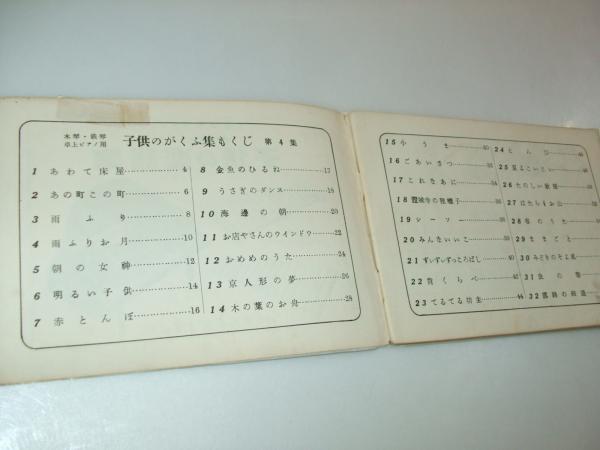 木琴・鉄琴
卓上ピアノ用
子供のがくふ集もくじ 第4集
1 あわて床屋……4
2 あの町この町……6
3 雨ふり……8
4 雨ふりお月……10
5 朝の女神……12
6 明るい子供……14
7 赤とんぼ……16
8 金魚のひるね……17
9 うさぎのダンス……18
10 海邊の朝……20
11 お店やさんのウインドウ……22
12 おめめのうた……24
13 京人形の夢……26
14 木の葉のお舟……28
15 小うま
16 ごあいさつ
17 これなあに
18 證城寺の狸囃子
19 シーソー
20 みんないいこ
21 ずいずいずっころばし
22 背くらべ
23 てるてる坊主……44
24 とんび
25
26 たのしい
27
28 春のうた
29 ままごと
30 みどりのそよ風
31 虫の
32